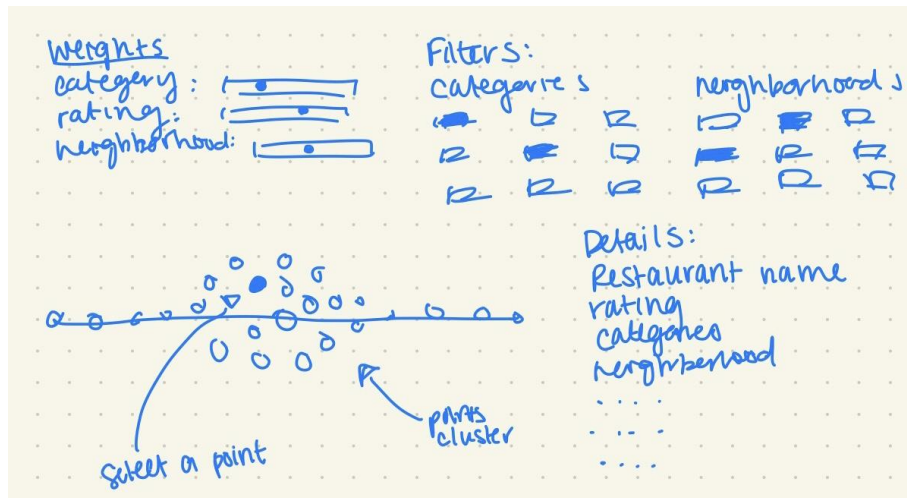 weights
category:
rating:
neighborhood:
Filters:
categories
neighborhoods
Details:
Restaurant name
rating
categories
neighborhood
select a point
points
cluster